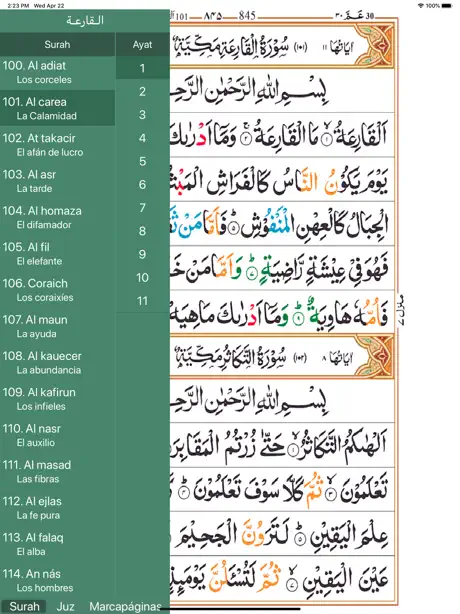 2:23 PM Wed Apr 22
100%
القارعة
Surah
Ayat
100. Al adiat
Los corceles
101. Al carea
La Calamidad
102. At takacir
El afán de lucro
103. Al asr
La tarde
104. Al homaza
El difamador
105. Al fil
El elefante
106. Coraich
Los coraixíes
107. Al maun
La ayuda
108. Al kauecer
La abundancia
109. Al kafirun
Los infieles
110. Al nasr
El auxilio
111. Al masad
Las fibras
112. Al ejlas
La fe pura
113. Al falaq
El alba
114. An nás
Los hombres
1
2
3
4
5
6
7
8
9
10
11
Surah
Juz
Marcapáginas
30 عَمَّ ٣٠
845 ٨٤٥
101
اٰيَاتُهَا ١١ (١٠١) سُوْرَةُ الْقَارِعَةِ مَكِّيَّةٌ
بِسْمِ اللهِ الرَّحْمٰنِ
اَلْقَارِعَةُ ۝١ مَا الْقَارِعَةُ ۝٢ وَمَاۤ اَدْرٰىكَ
يَوْمَ يَكُوْنُ النَّاسُ كَالْفَرَاشِ
الْجِبَالُ كَالْعِهْنِ الْمَنْفُوْشِ ۝٥ فَاَمَّا مَنْ
فَهُوَ فِيْ عِيْشَةٍ رَّاضِيَةٍ ۝٧ وَاَمَّا مَنْ
فَاُمُّهٗ هَاوِيَةٌ ۝٩ وَمَاۤ اَدْرٰىكَ مَاهِيَهْ
منزل ٧
اٰيَاتُهَا ٨ (١٠٢) سُوْرَةُ التَّكَاثُرِ مَكِّيَّةٌ
بِسْمِ اللهِ الرَّحْمٰنِ
اَلْهٰىكُمُ التَّكَاثُرُ ۝١ حَتّٰى زُرْتُمُ
تَعْلَمُوْنَ ۝٣ ثُمَّ كَلَّا سَوْفَ تَعْلَمُوْنَ ۝٤
عِلْمَ الْيَقِيْنِ ۝٥ لَتَرَوُنَّ الْجَحِيْمَ
عَيْنَ الْيَقِيْنِ ۝٧ ثُمَّ لَتُسْـَٔلُنَّ يَوْمَىِٕذٍ